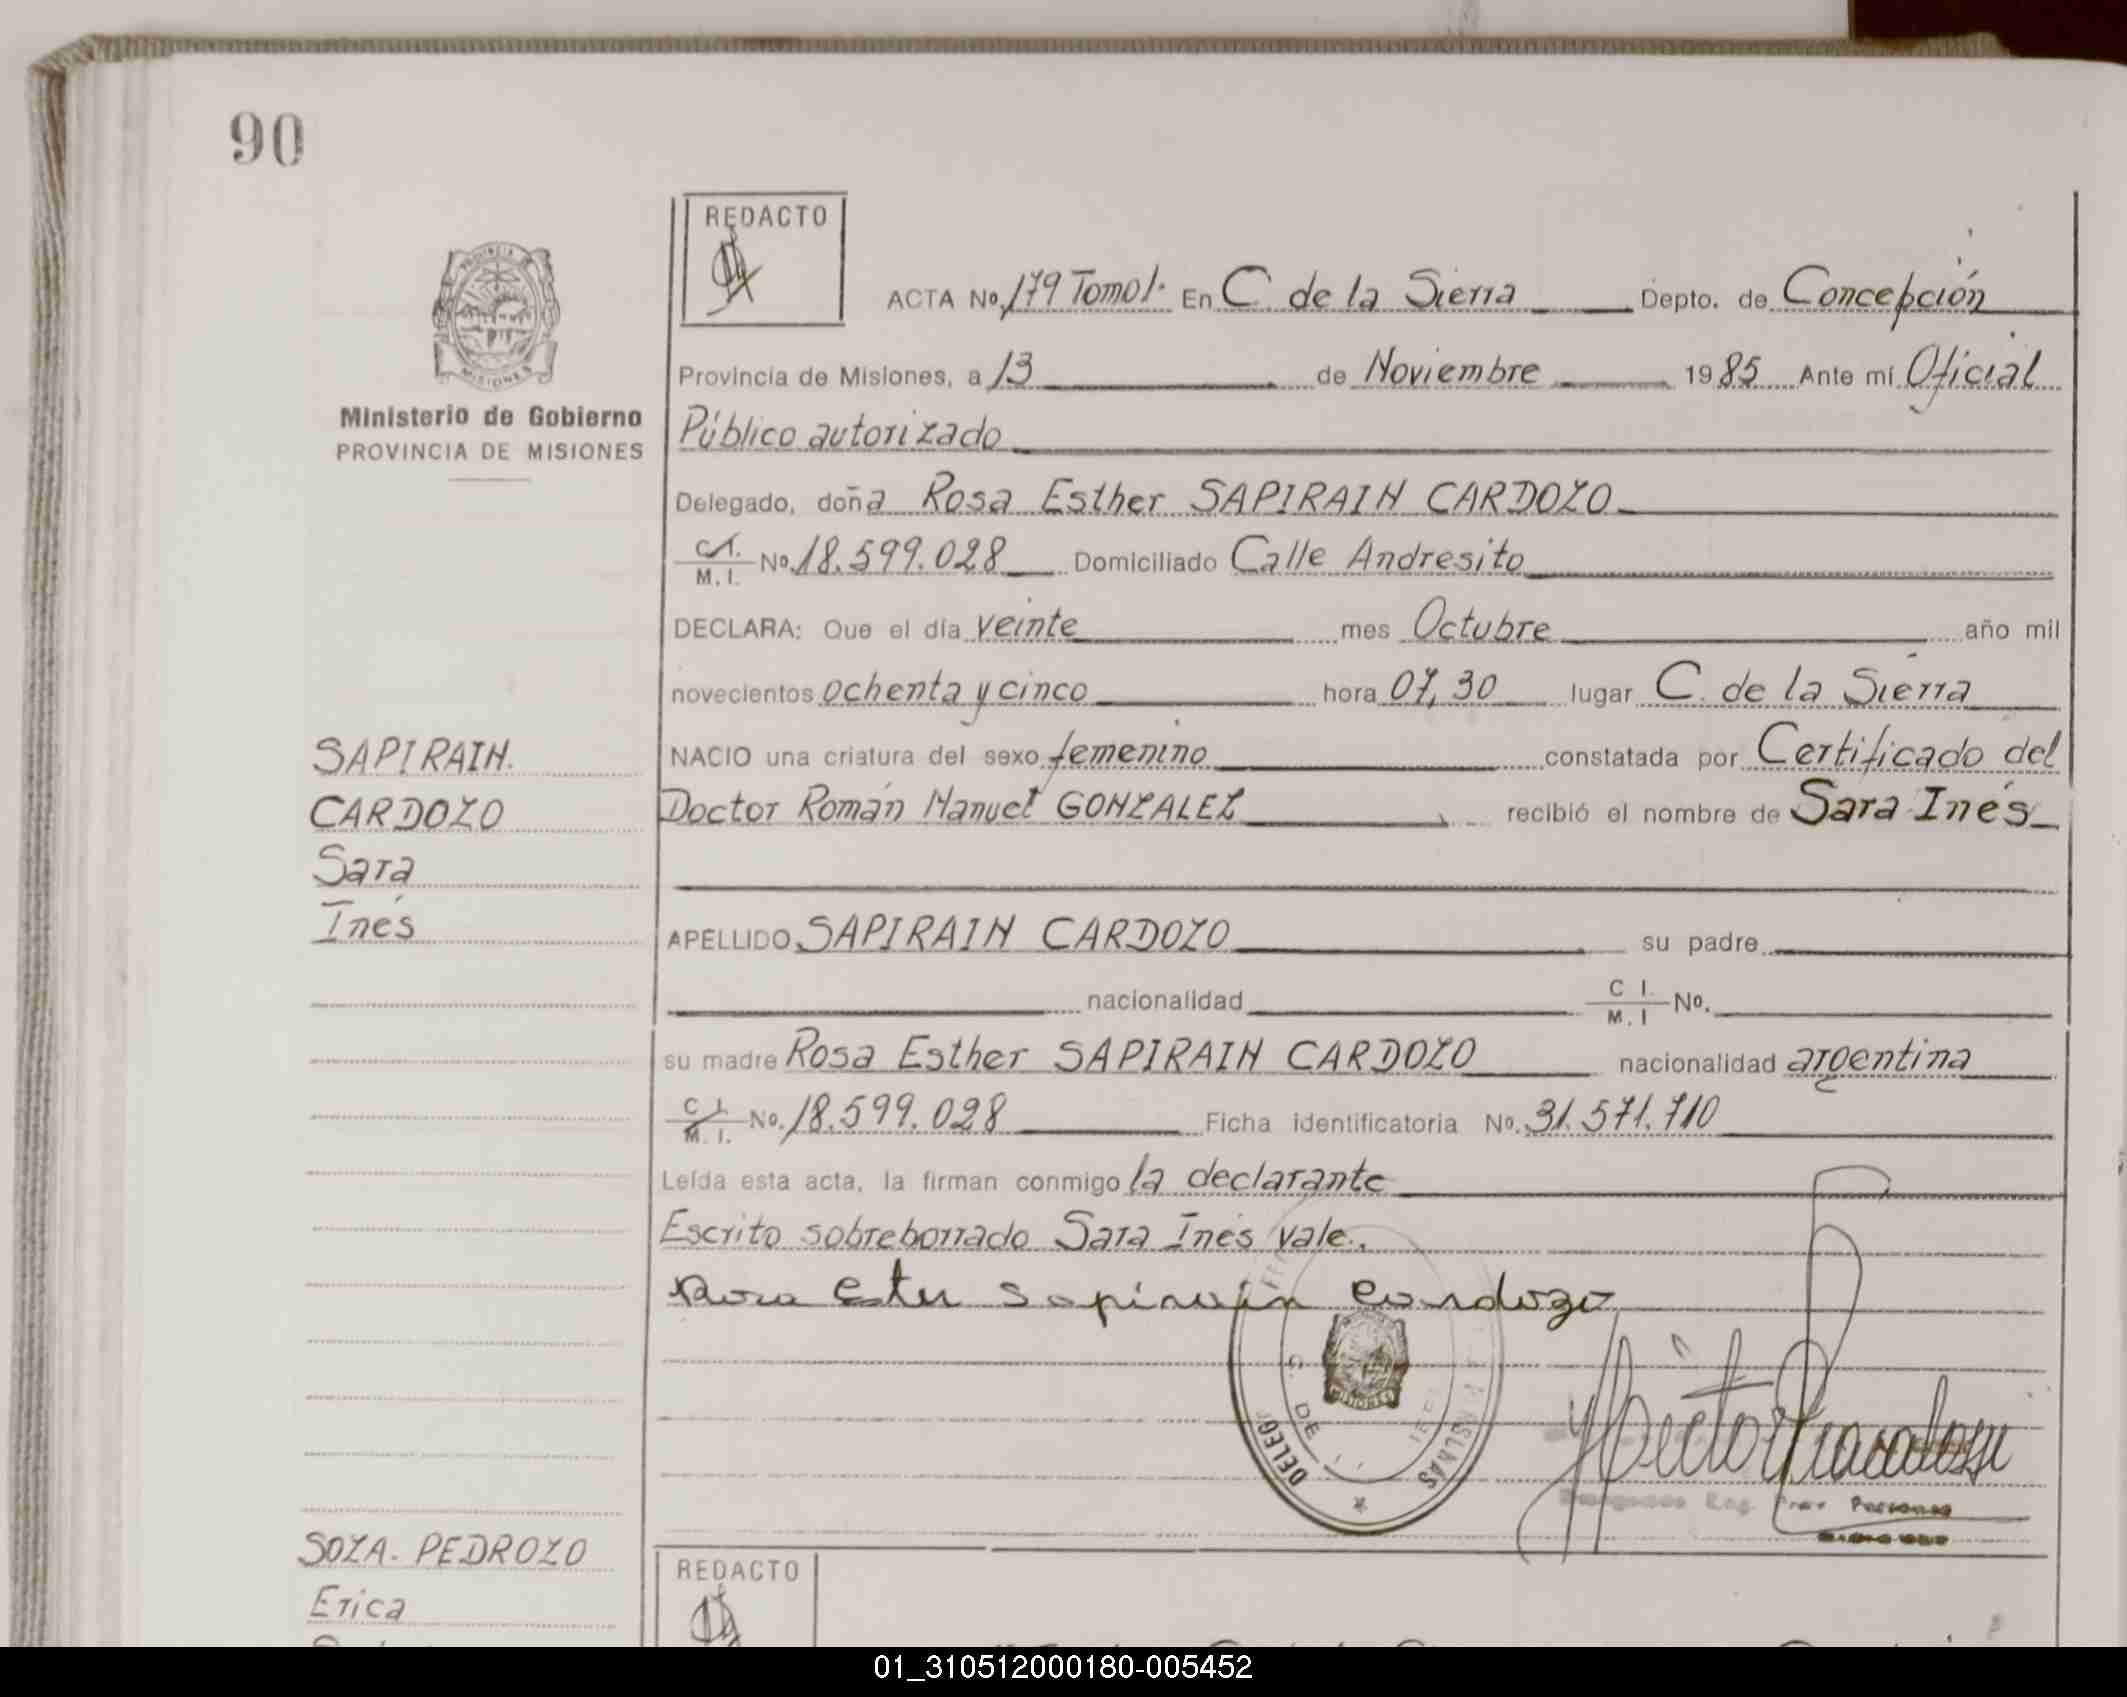 90
REDACTO
ACTA No. 179 Tomo I. En C. de la Sierra Depto. de Concepción
Provincia de Misiones, a 13 de Noviembre 1985 Ante mí Oficial
Ministerio de Gobierno
PROVINCIA DE MISIONES
Público autorizado
Delegado, doña Rosa Esther SAPIRAIN CARDOZO
C.I. M.I. No. 18.599.028 Domiciliado Calle Andresito
DECLARA: Que el día veinte mes Octubre año mil
novecientos ochenta y cinco hora 07,30 lugar C. de la Sierra
NACIO una criatura del sexo femenino constatada por Certificado del
Doctor Román Manuel GONZALEZ recibió el nombre de Sara Inés
SAPIRAIN.
CARDOZO
Sara
Inés
APELLIDO SAPIRAIN CARDOZO su padre
nacionalidad C I. M. I No.
su madre Rosa Esther SAPIRAIN CARDOZO nacionalidad argentina
C I. M. I. No. 18.599.028 Ficha identificatoria No. 31.571.710
Leída esta acta, la firman conmigo la declarante
Escrito sobreborrado Sara Inés vale.
Rosa Ester Sapirain Cardozo
MISIONES
DELEG
DE
SOZA. PEDROZO
Erica
REDACTO
01_310512000180-005452